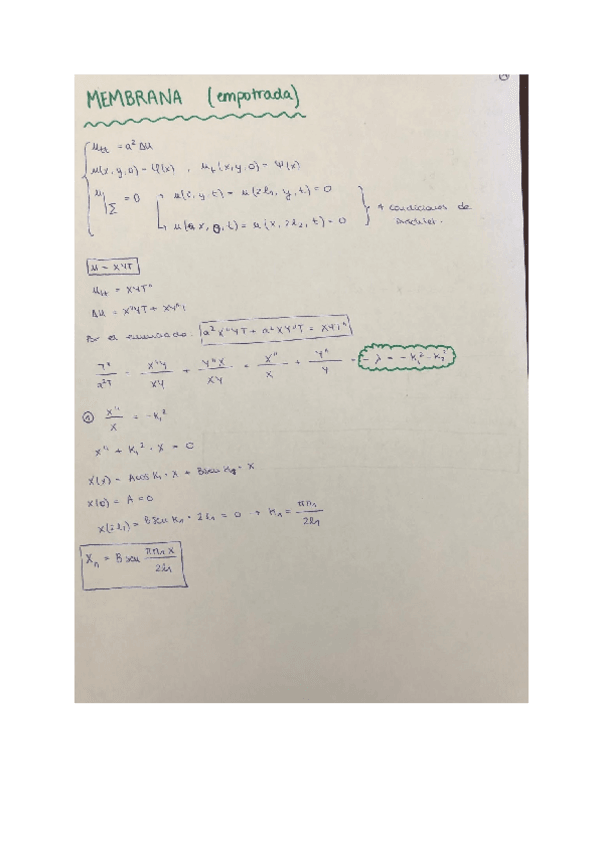 MEMBRANA (empotrada)
u_tt = a² Δu
u(x,y,0) = φ(x) , u_t(x,y,0) = Ψ(x)
u|_Σ = 0
u(0,y,t) = u(2l₁,y,t) = 0
u(x,0,t) = u(x,2l₂,t) = 0
4 condiciones de
u = XYT
u_tt = XYT''
Δu = X''YT + XY''T
Por el enunciado: a²X''YT + a²XY''T = XYT''
T''/a²T = X''Y/XY + Y''X/XY = X''/X + Y''/Y = -λ = -K₁² - K₂²
① X''/X = -K₁²
X'' + K₁² · X = 0
X(x) = A cos K₁ · X + B sen K₁ · X
X(0) = A = 0
X(2l₁) = B sen K₁ · 2l₁ = 0 → K₁ = πn₁/2l₁
Xₙ = B sen πn₁x/2l₁